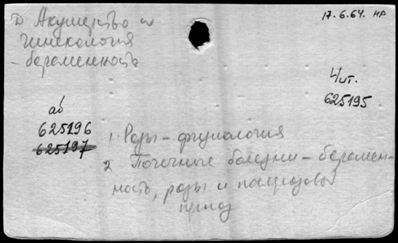 Акушерство и
гинекология
- беременность
17.6.64. НР
Чит.
625195
аб
625196
625197
1. Роды - физиология
2 Почечные болезни - беремен-
ность, роды и